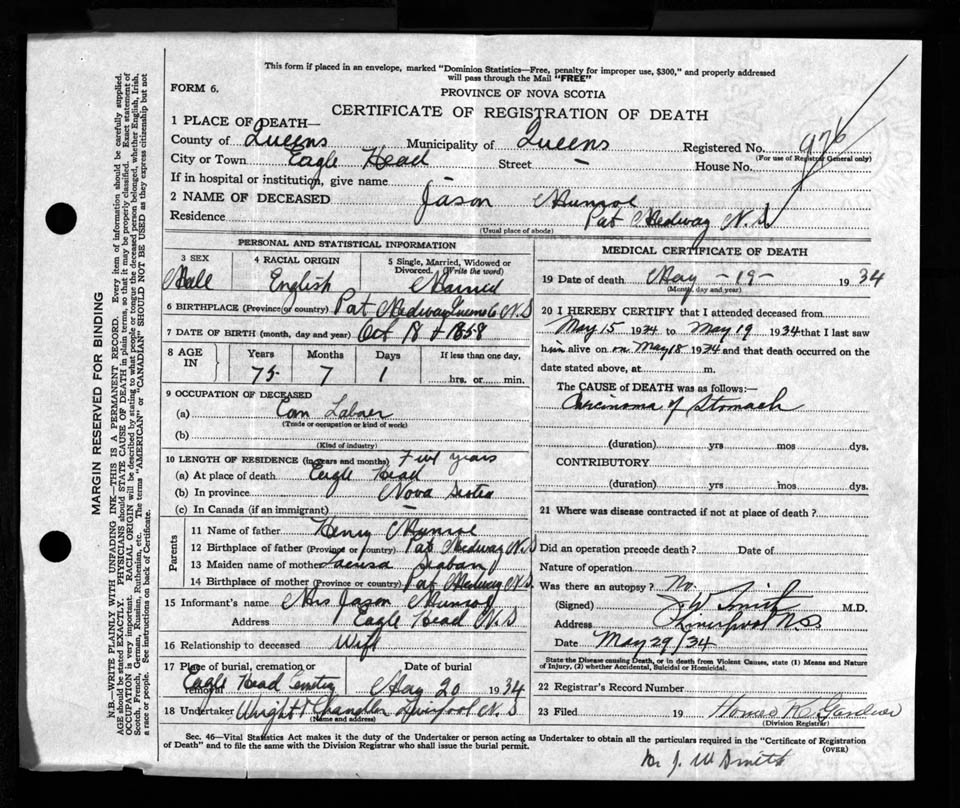 This form if placed in an envelope, marked "Dominion Statistics—Free, penalty for improper use, $300," and properly addressed
will pass through the Mail "FREE"
FORM 6.
PROVINCE OF NOVA SCOTIA
CERTIFICATE OF REGISTRATION OF DEATH
1 PLACE OF DEATH—
County of Queens Municipality of Queens Registered No. 926
(For use of Registrar General only)
City or Town Eagle Head Street — House No.
If in hospital or institution, give name
2 NAME OF DECEASED Jason Munroe
Residence Pat Medway N.S
(Usual place of abode)
PERSONAL AND STATISTICAL INFORMATION
3 SEX 4 RACIAL ORIGIN 5 Single, Married, Widowed or
Divorced. (Write the word)
Male English Married
6 BIRTHPLACE (Province or country) Pat Medway Queens Co N.S
7 DATE OF BIRTH (month, day and year) Oct 18 1858
8 AGE IN Years Months Days If less than one day,
75 7 1 hrs. or min.
9 OCCUPATION OF DECEASED
(a) Com Laborer
(Trade or occupation or kind of work)
(b)
(Kind of industry)
10 LENGTH OF RESIDENCE (in years and months) Five years
(a) At place of death Eagle Head
(b) In province Nova Scotia
(c) In Canada (if an immigrant) —
Parents
11 Name of father Henry Munroe
12 Birthplace of father (Province or country) Pat Medway N.S
13 Maiden name of mother
14 Birthplace of mother (Province or country) Pat Medway N.S.
15 Informant's name Mrs Jason Munroe
Address Eagle Head N.S
16 Relationship to deceased Wife
17 Place of burial, cremation or removal Date of burial
Eagle Head May 20 1934
18 Undertaker Wright & Chandler Liverpool N.S
(Name and address)
MEDICAL CERTIFICATE OF DEATH
19 Date of death May -19- 1934
(Month, day and year)
20 I HEREBY CERTIFY that I attended deceased from
May 15 1934 to May 19 1934 that I last saw
him alive on on May 18 1934 and that death occurred on the
date stated above, at m.
The CAUSE of DEATH was as follows:—
Carcinoma of Stomach
(duration) yrs mos dys.
CONTRIBUTORY
(duration) yrs. mos. dys.
21 Where was disease contracted if not at place of death?
Did an operation precede death? Date of
Nature of operation
Was there an autopsy? No.
(Signed) J W Smith M.D.
Address Liverpool N.S.
Date May 29/34
State the Disease causing Death, or in death from Violent Causes, state (1) Means and Nature
of Injury, (2) whether Accidental, Suicidal or Homicidal.
22 Registrar's Record Number
23 Filed 19 Homer K. Gardner
(Division Registrar)
Sec. 46—Vital Statistics Act makes it duty of the Undertaker or person acting as Undertaker to obtain all the particulars required in the "Certificate of Registration
of Death" and to file the same with the Division Registrar who shall issue the burial permit.
(OVER)
Dr J. W Smith
MARGIN RESERVED FOR BINDING
N.B.—WRITE PLAINLY WITH UNFADING INK—THIS IS A PERMANENT RECORD. Every item of information should be carefully supplied.
AGE should be stated EXACTLY. PHYSICIANS should STATE CAUSE OF DEATH in plain terms, so that it may be properly classified. Exact statement of
OCCUPATION is very important. RACIAL ORIGIN will be described by stating to what people or tongue the deceased person belonged, whether English, Irish,
Scotch, French, German, Russian, Ruthenian, etc. The terms "AMERICAN" or "CANADIAN" SHOULD NOT BE USED as they express citizenship but not
a race or people. See instructions on back of Certificate.